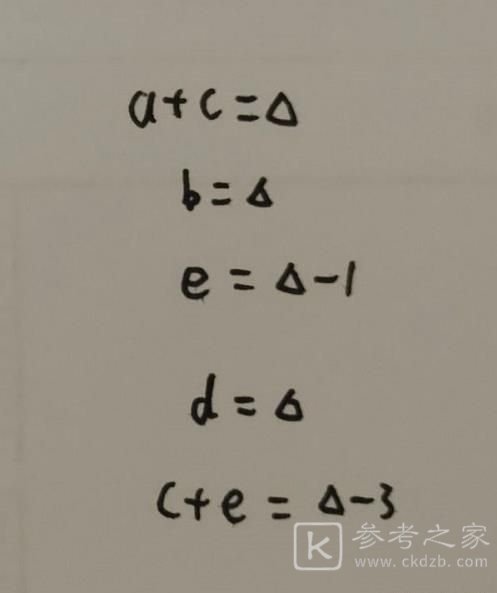 a+c=Δ
b=Δ
e=Δ-1
d=Δ
c+e=Δ-3
K 参考之家
www.ckdzb.com